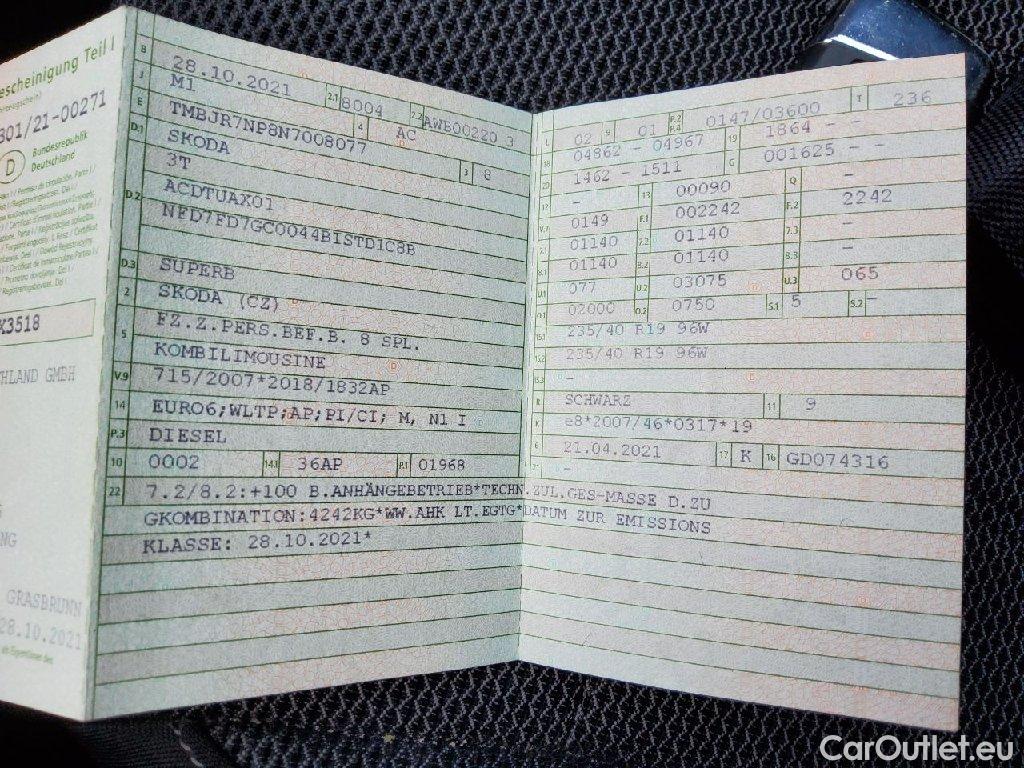 escheinigung Teil I
301/21-00271
D
Bundesrepublik
Deutschland
K3518
HLAND GMBH
NG
GRASBRUNN
28.10.2021
B 28.10.2021 2.1 8004 2.2 AWB00220 3
J M1 4 AC
E TMBJR7NP8N7008077 3 8
D.1 SKODA
3T
D.2 ACDTUAX01
NFD7FD7GC0044BISTD1C8B
D.3 SUPERB
2 SKODA (CZ)
5 FZ.Z.PERS.BEF.B. 8 SPL.
KOMBILIMOUSINE
V.9 715/2007*2018/1832AP
14 EURO6;WLTP;AP;PI/CI; M, N1 I
P.3 DIESEL
10 0002 14.1 36AP P.1 01968
22 7.2/8.2:+100 B.ANHÄNGEBETRIEB*TECHN.ZUL.GES-MASSE D.ZU
GKOMBINATION:4242KG*WW.AHK LT.EGTG*DATUM ZUR EMISSIONS
KLASSE: 28.10.2021*
L 02 9 01 P.2 P.4 0147/03600 T 236
18 04862 - 04967 19 1864 - -
20 1462 - 1511 G 001625 - -
12 - 13 00090 Q -
V.7 0149 F.1 002242 F.2 2242
7.1 01140 7.2 01140 7.3 -
8.1 01140 8.2 01140 8.3 -
U.1 077 U.2 03075 U.3 065
O.1 02000 O.2 0750 S.1 5 S.2 -
15.1 235/40 R19 96W
15.2 235/40 R19 96W
15.3 -
R SCHWARZ 11 9
K e8*2007/46*0317*19
6 21.04.2021 17 K 16 GD074316
21 -
CarOutlet.eu